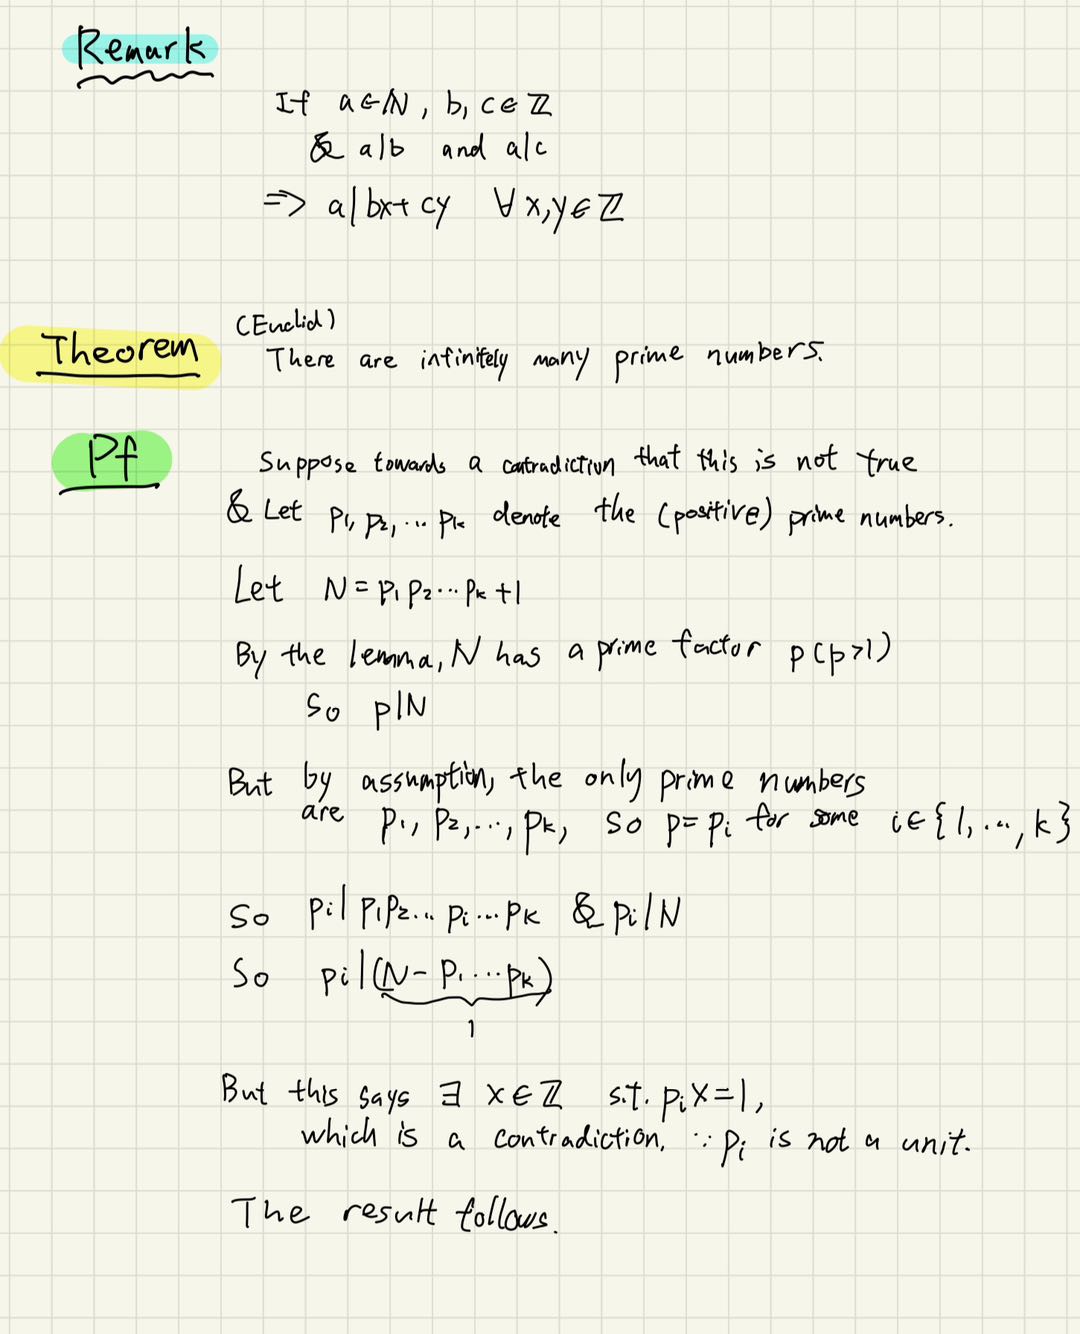 Remark
If a∈ℕ, b, c∈ℤ
& a|b and a|c
⇒ a|bx+cy ∀x,y∈ℤ
(Euclid)
Theorem There are infinitely many prime numbers.
Pf Suppose towards a contradiction that this is not true
& Let p₁, p₂, ... pₖ denote the (positive) prime numbers.
Let N = p₁p₂...pₖ+1
By the lemma, N has a prime factor p(p>1)
So p|N
But by assumption, the only prime numbers
are p₁, p₂,..., pₖ, so p=pᵢ for some i∈{1,...,k}
So pᵢ|p₁p₂...pᵢ...pₖ & pᵢ|N
So pᵢ|(N-p₁...pₖ)
1
But this says ∃ x∈ℤ s.t. pᵢx=1,
which is a contradiction, ∵ pᵢ is not a unit.
The result follows.